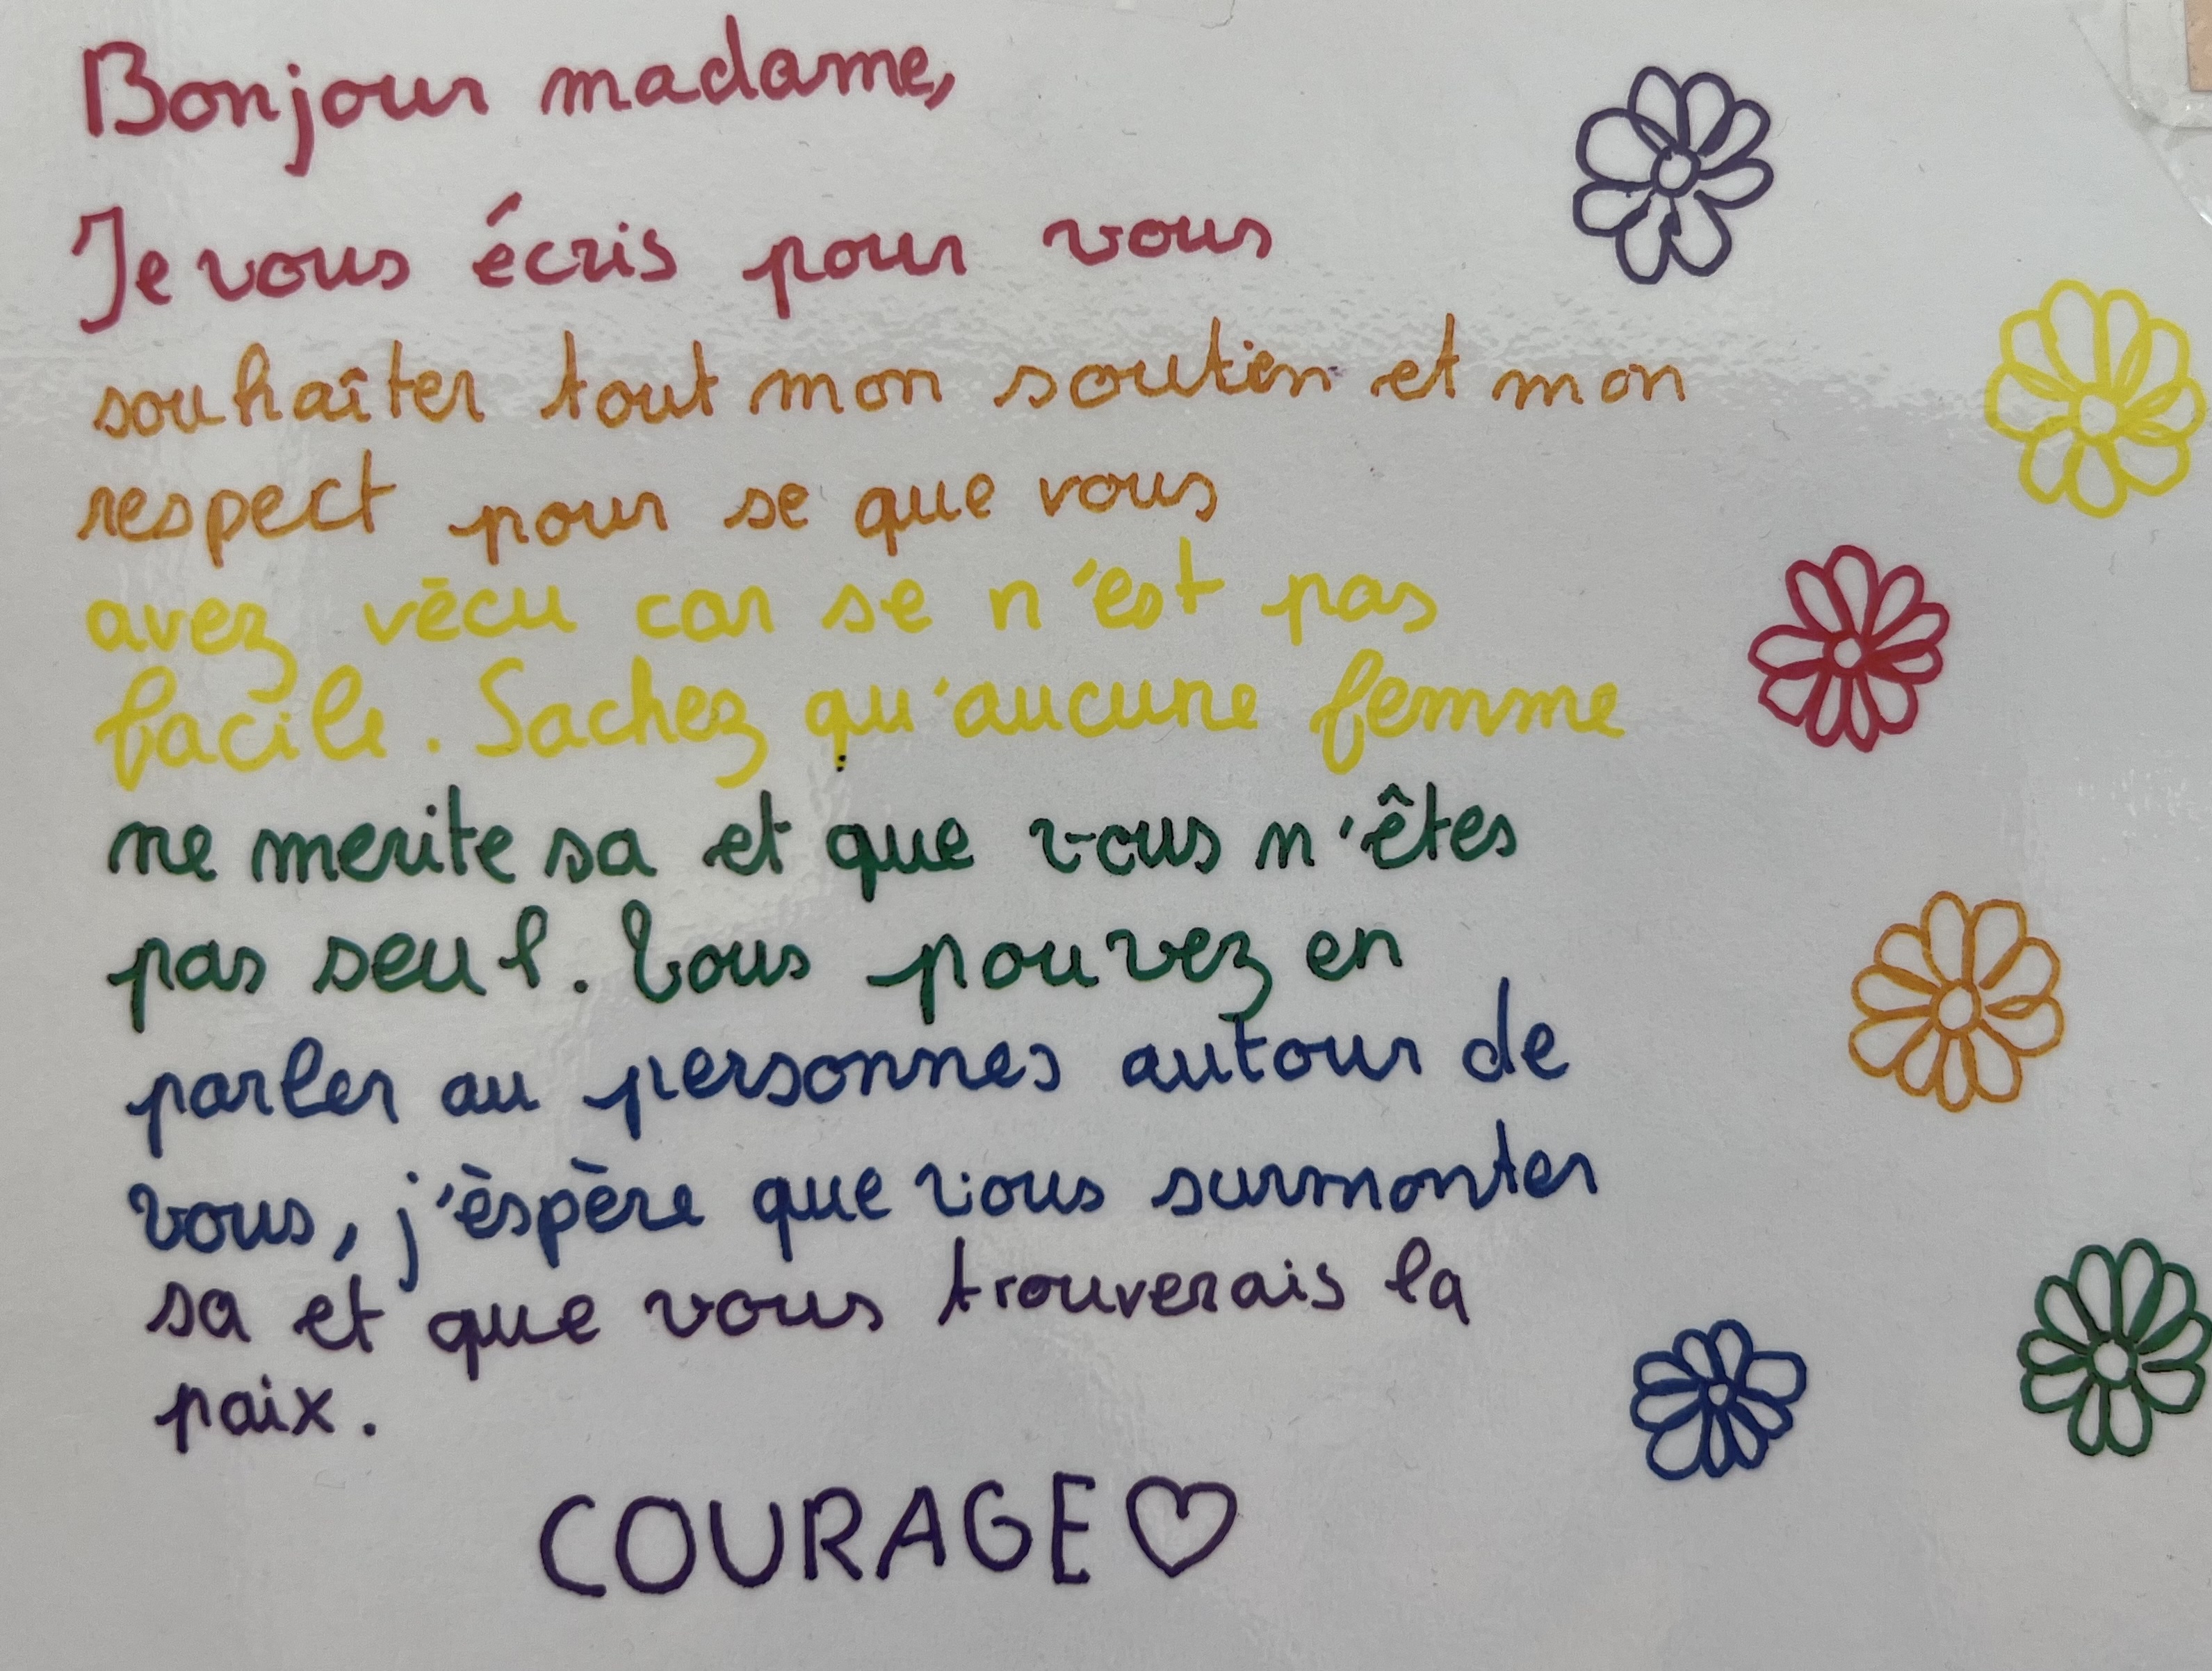 Bonjour madame,
Je vous écris pour vous
souhaîter tout mon soutien et mon
respect pour se que vous
avez vécu car se n'est pas
facile. Sachez qu'aucune femme
ne merite sa et que vous n'êtes
pas seul. Vous pouvez en
parler au personnes autour de
vous, j'èspère que vous surmonter
sa et que vous trouverais la
paix.
COURAGE♡